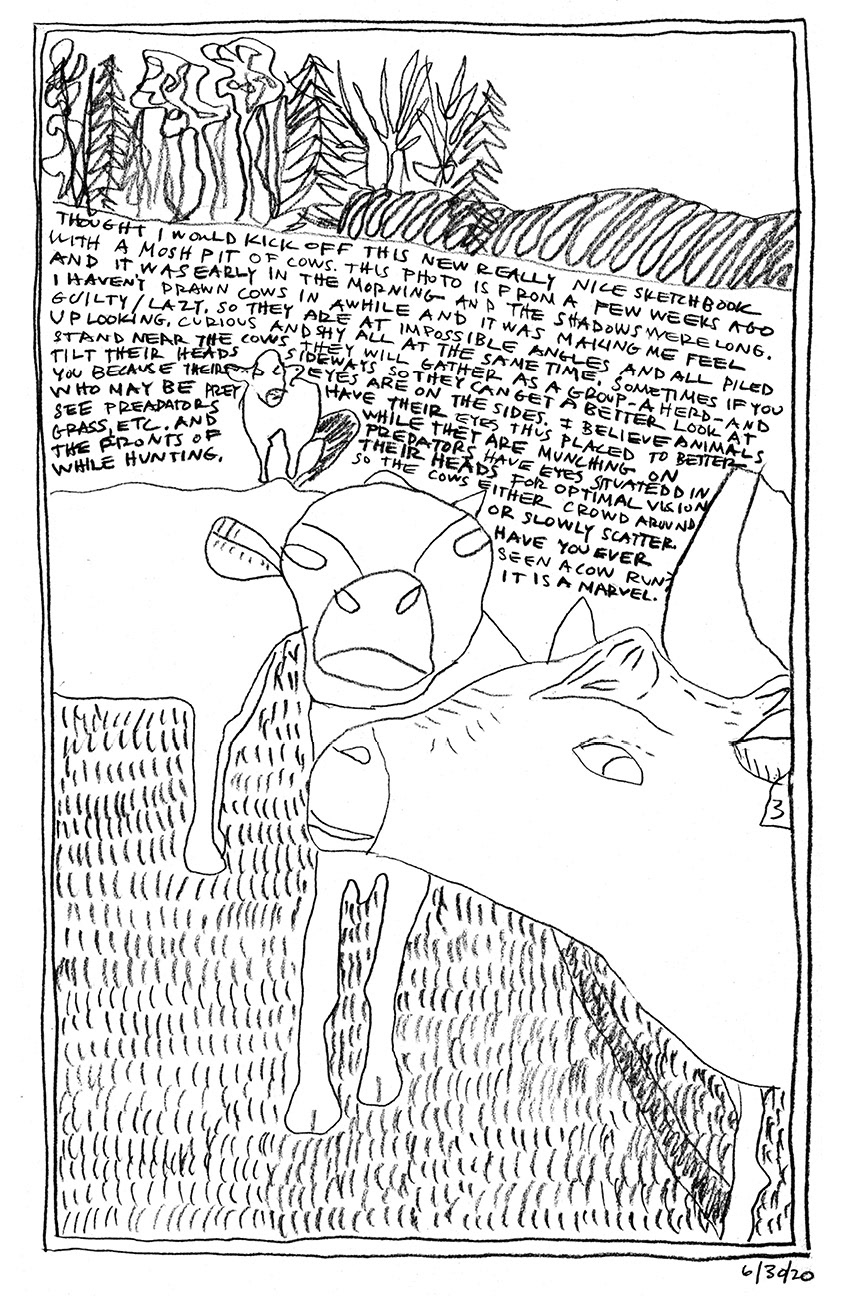 THOUGHT I WOULD KICK OFF THIS NEW REALLY NICE SKETCHBOOK
WITH A MOSH PIT OF COWS. THIS PHOTO IS FROM A FEW WEEKS AGO
AND IT WAS EARLY IN THE MORNING AND THE SHADOWS WERE LONG.
I HAVEN'T DRAWN COWS IN AWHILE AND IT WAS MAKING ME FEEL
GUILTY/LAZY. SO THEY ARE AT IMPOSSIBLE ANGLES AND ALL PILED
UP LOOKING, CURIOUS AND SHY ALL AT THE SAME TIME. SOMETIMES IF YOU
STAND NEAR THE COWS THEY WILL GATHER AS A GROUP-A HERD-AND
TILT THEIR HEADS SIDEWAYS SO THEY CAN GET A BETTER LOOK AT
YOU BECAUSE THEIR EYES ARE ON THE SIDES. I BELIEVE ANIMALS
WHO MAY BE PREY HAVE THEIR EYES THUS PLACED TO BETTER
SEE PREADATORS WHILE THEY ARE MUNCHING ON
GRASS, ETC. AND PREDATORS HAVE EYES SITUATEDD IN
THE FRONTS OF THEIR HEADS FOR OPTIMAL VISION
WHILE HUNTING. SO THE COWS EITHER CROWD AROUND
OR SLOWLY SCATTER.
HAVE YOU EVER
SEEN A COW RUN?
IT IS A MARVEL.
3
6/30/20